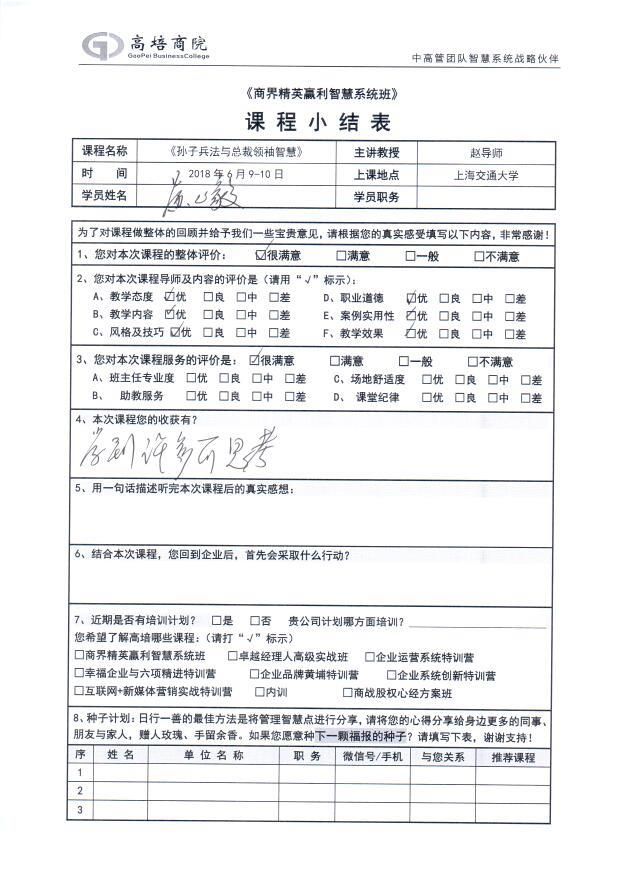 高培商院
GaoPei BusinessCollege
中高管团队智慧系统战略伙伴
《商界精英赢利智慧系统班》
课程小结表
课程名称 《孙子兵法与总裁领袖智慧》 主讲教授 赵导师
时 间 2018年6月9-10日 上课地点 上海交通大学
学员姓名 学员职务
为了对课程做整体的回顾并给予我们一些宝贵意见,请根据您的真实感受填写以下内容,非常感谢!
1、您对本次课程的整体评价: ☑很满意 □满意 □一般 □不满意
2、您对本次课程导师及内容的评价是(请用“√”标示):
A、教学态度 ☑优 □良 □中 □差 D、职业道德 ☑优 □良 □中 □差
B、教学内容 ☑优 □良 □中 □差 E、案例实用性 ☑优 □良 □中 □差
C、风格及技巧 ☑优 □良 □中 □差 F、教学效果 ☑优 □良 □中 □差
3、您对本次课程服务的评价是: ☑很满意 □满意 □一般 □不满意
A、班主任专业度 □优 □良 □中 □差 C、场地舒适度 □优 □良 □中 □差
B、 助教服务 □优 □良 □中 □差 D、 课堂纪律 □优 □良 □中 □差
4、本次课程您的收获有?
学到许多可思考
5、用一句话描述听完本次课程后的真实感想:
6、结合本次课程,您回到企业后,首先会采取什么行动?
7、近期是否有培训计划? □是 □否 贵公司计划哪方面培训?
您希望了解高培哪些课程:(请打“√”标示)
□商界精英赢利智慧系统班 □卓越经理人高级实战班 □企业运营系统特训营
□幸福企业与六项精进特训营 □企业品牌黄埔特训营 □企业系统创新特训营
□互联网+新媒体营销实战特训营 □内训 □商战股权心经方案班
8、种子计划:日行一善的最佳方法是将管理智慧点进行分享,请将您的心得分享给身边更多的同事、
朋友与家人,赠人玫瑰、手留余香。如果您愿意种下一颗福报的种子?请填写下表,谢谢支持!
序 姓 名 单 位 名 称 职 务 微信号/手机 与您关系 推荐课程
1
2
3